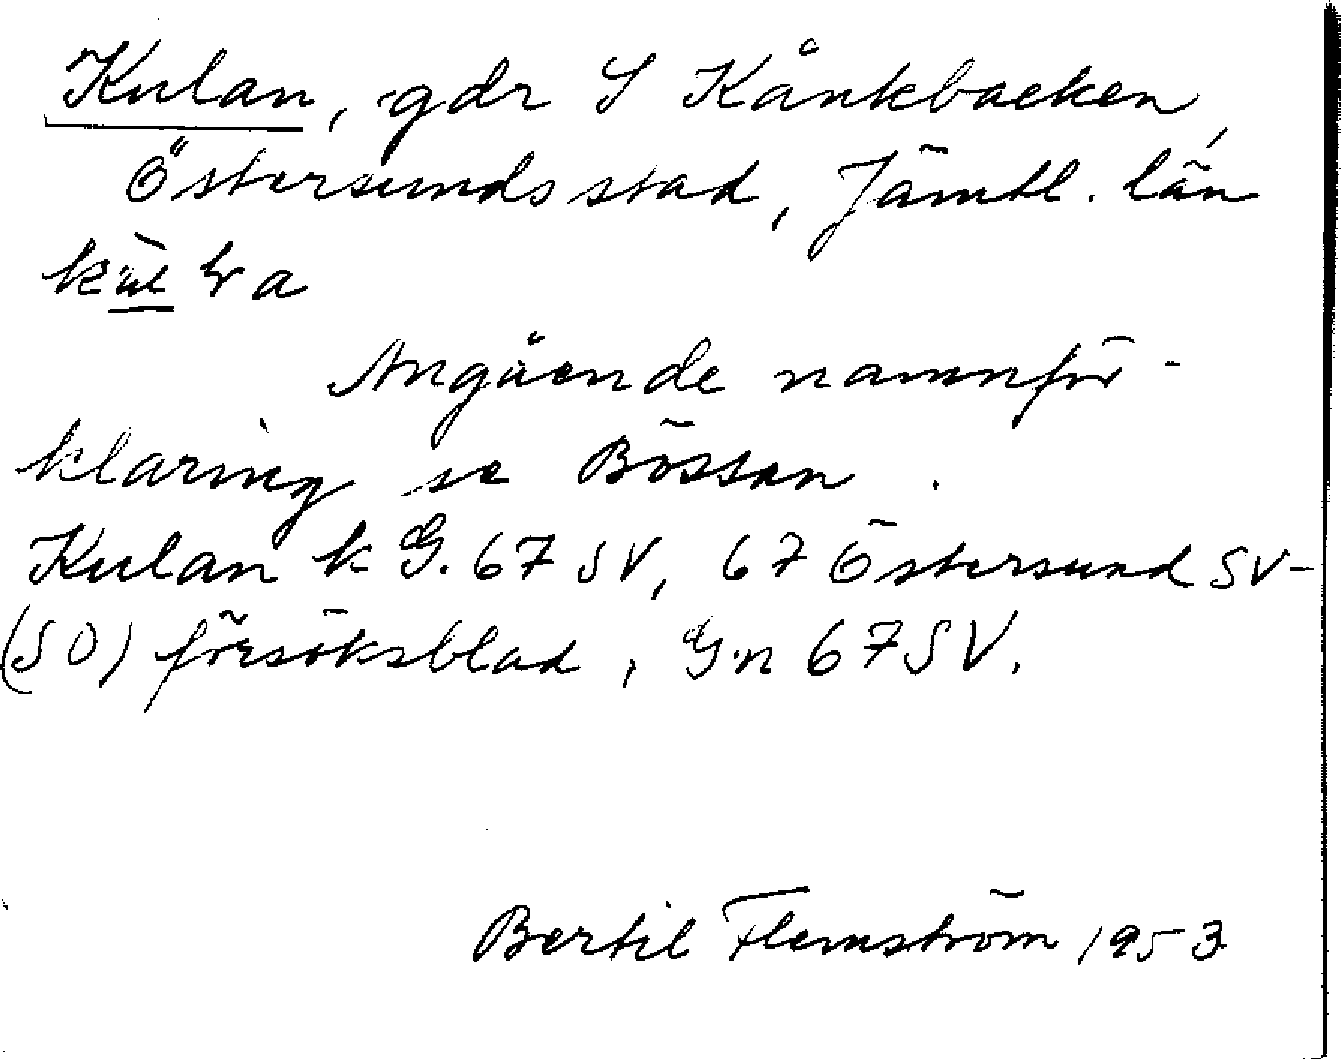 Kulan, gdr S Kånkbacken,
Östersunds stad, Jämtl. län
Angående namnför-
klaring se Bössan.
Kulan k G. 67 SV, 67 Östersund SV-
(SO) försöksblad, G.n 67 SV.
Bertil Flemström 1953